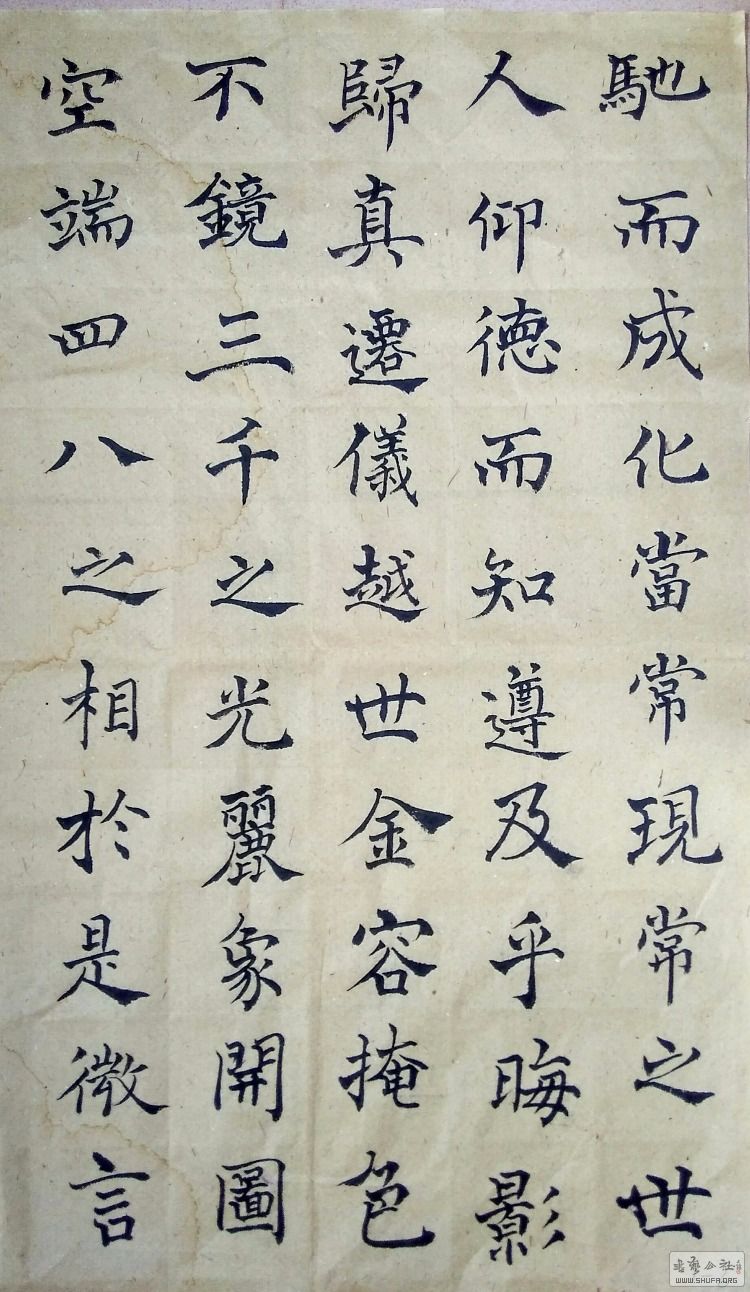 馳而成化當常現常之世
人仰德而知遵及乎晦影
歸真遷儀越世金容掩色
不鏡三千之光麗象開圖
空端四八之相於是微言
书艺公社
WWW.SHUFA.ORG